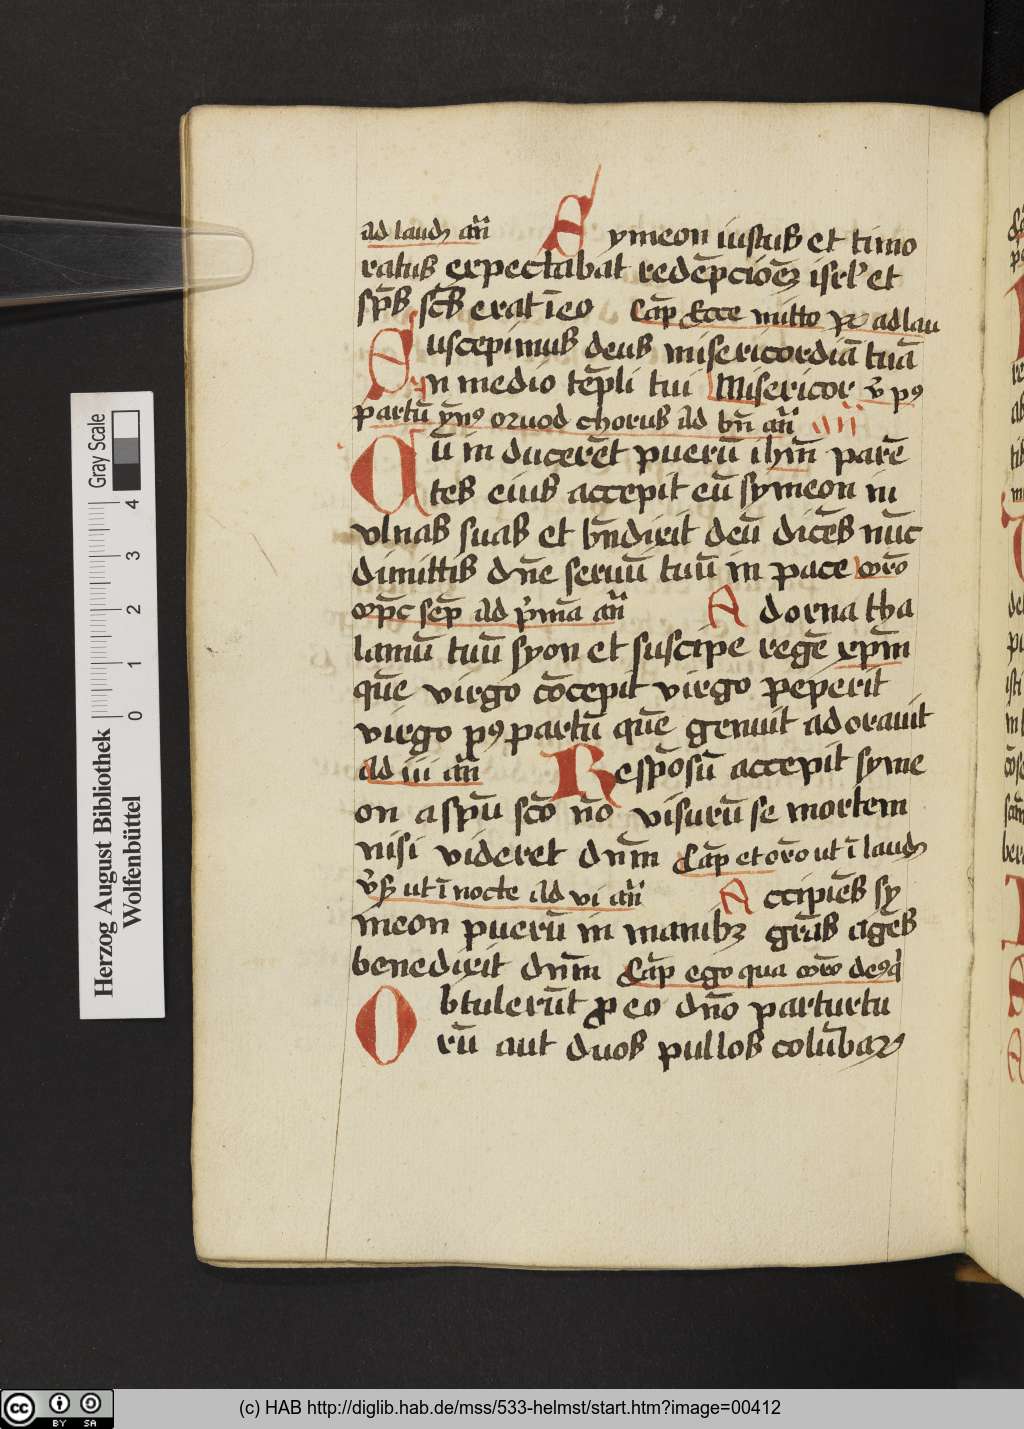 ad laudꝫ an̄
Symeon iustus et timo
ratus expectabat redēpcioēꝫ isrl' et
sp̄s sc̄s erat ī eo Cap̄ Ecce mitto R adlau
Suscepimus deus misericordiā tuā
In medio tēpli tui Misericor v̄ pꝰ
partū chorus ad bn̄ an̄
Cū in ducerēt puerū ihm̄ parē
tes eius accepit eū symeon in
vlnas suas et bn̄dixit deū dicēs nūc
dimittis dn̄e seruū tuū in pace
ad p̄mā an̄ Adorna tha
lamū tuū syon et suscipe regē xpm̄
quē virgo cōcepit virgo peperit
virgo pꝰ partū quē genuit adorauit
ad iii an̄ Respōsū accepit syme
on a spū scō nō visurū se mortem
nisi videret dnm̄ Cap̄ et orō ut ī laudꝫ
v̄s ut ī nocte ad vi an̄ Accipiēs sy
meon puerū in manibꝫ grās agēs
benedixit dnm̄ Cap̄ ego qua orō deꝰ q̄
Obtulerūt ꝓ eo dn̄o par turtu
rū aut duos pullos colūbaꝝ
Herzog August Bibliothek
Wolfenbüttel
Gray Scale
0 1 2 3 4
cc BY SA
(c) HAB http://diglib.hab.de/mss/533-helmst/start.htm?image=00412